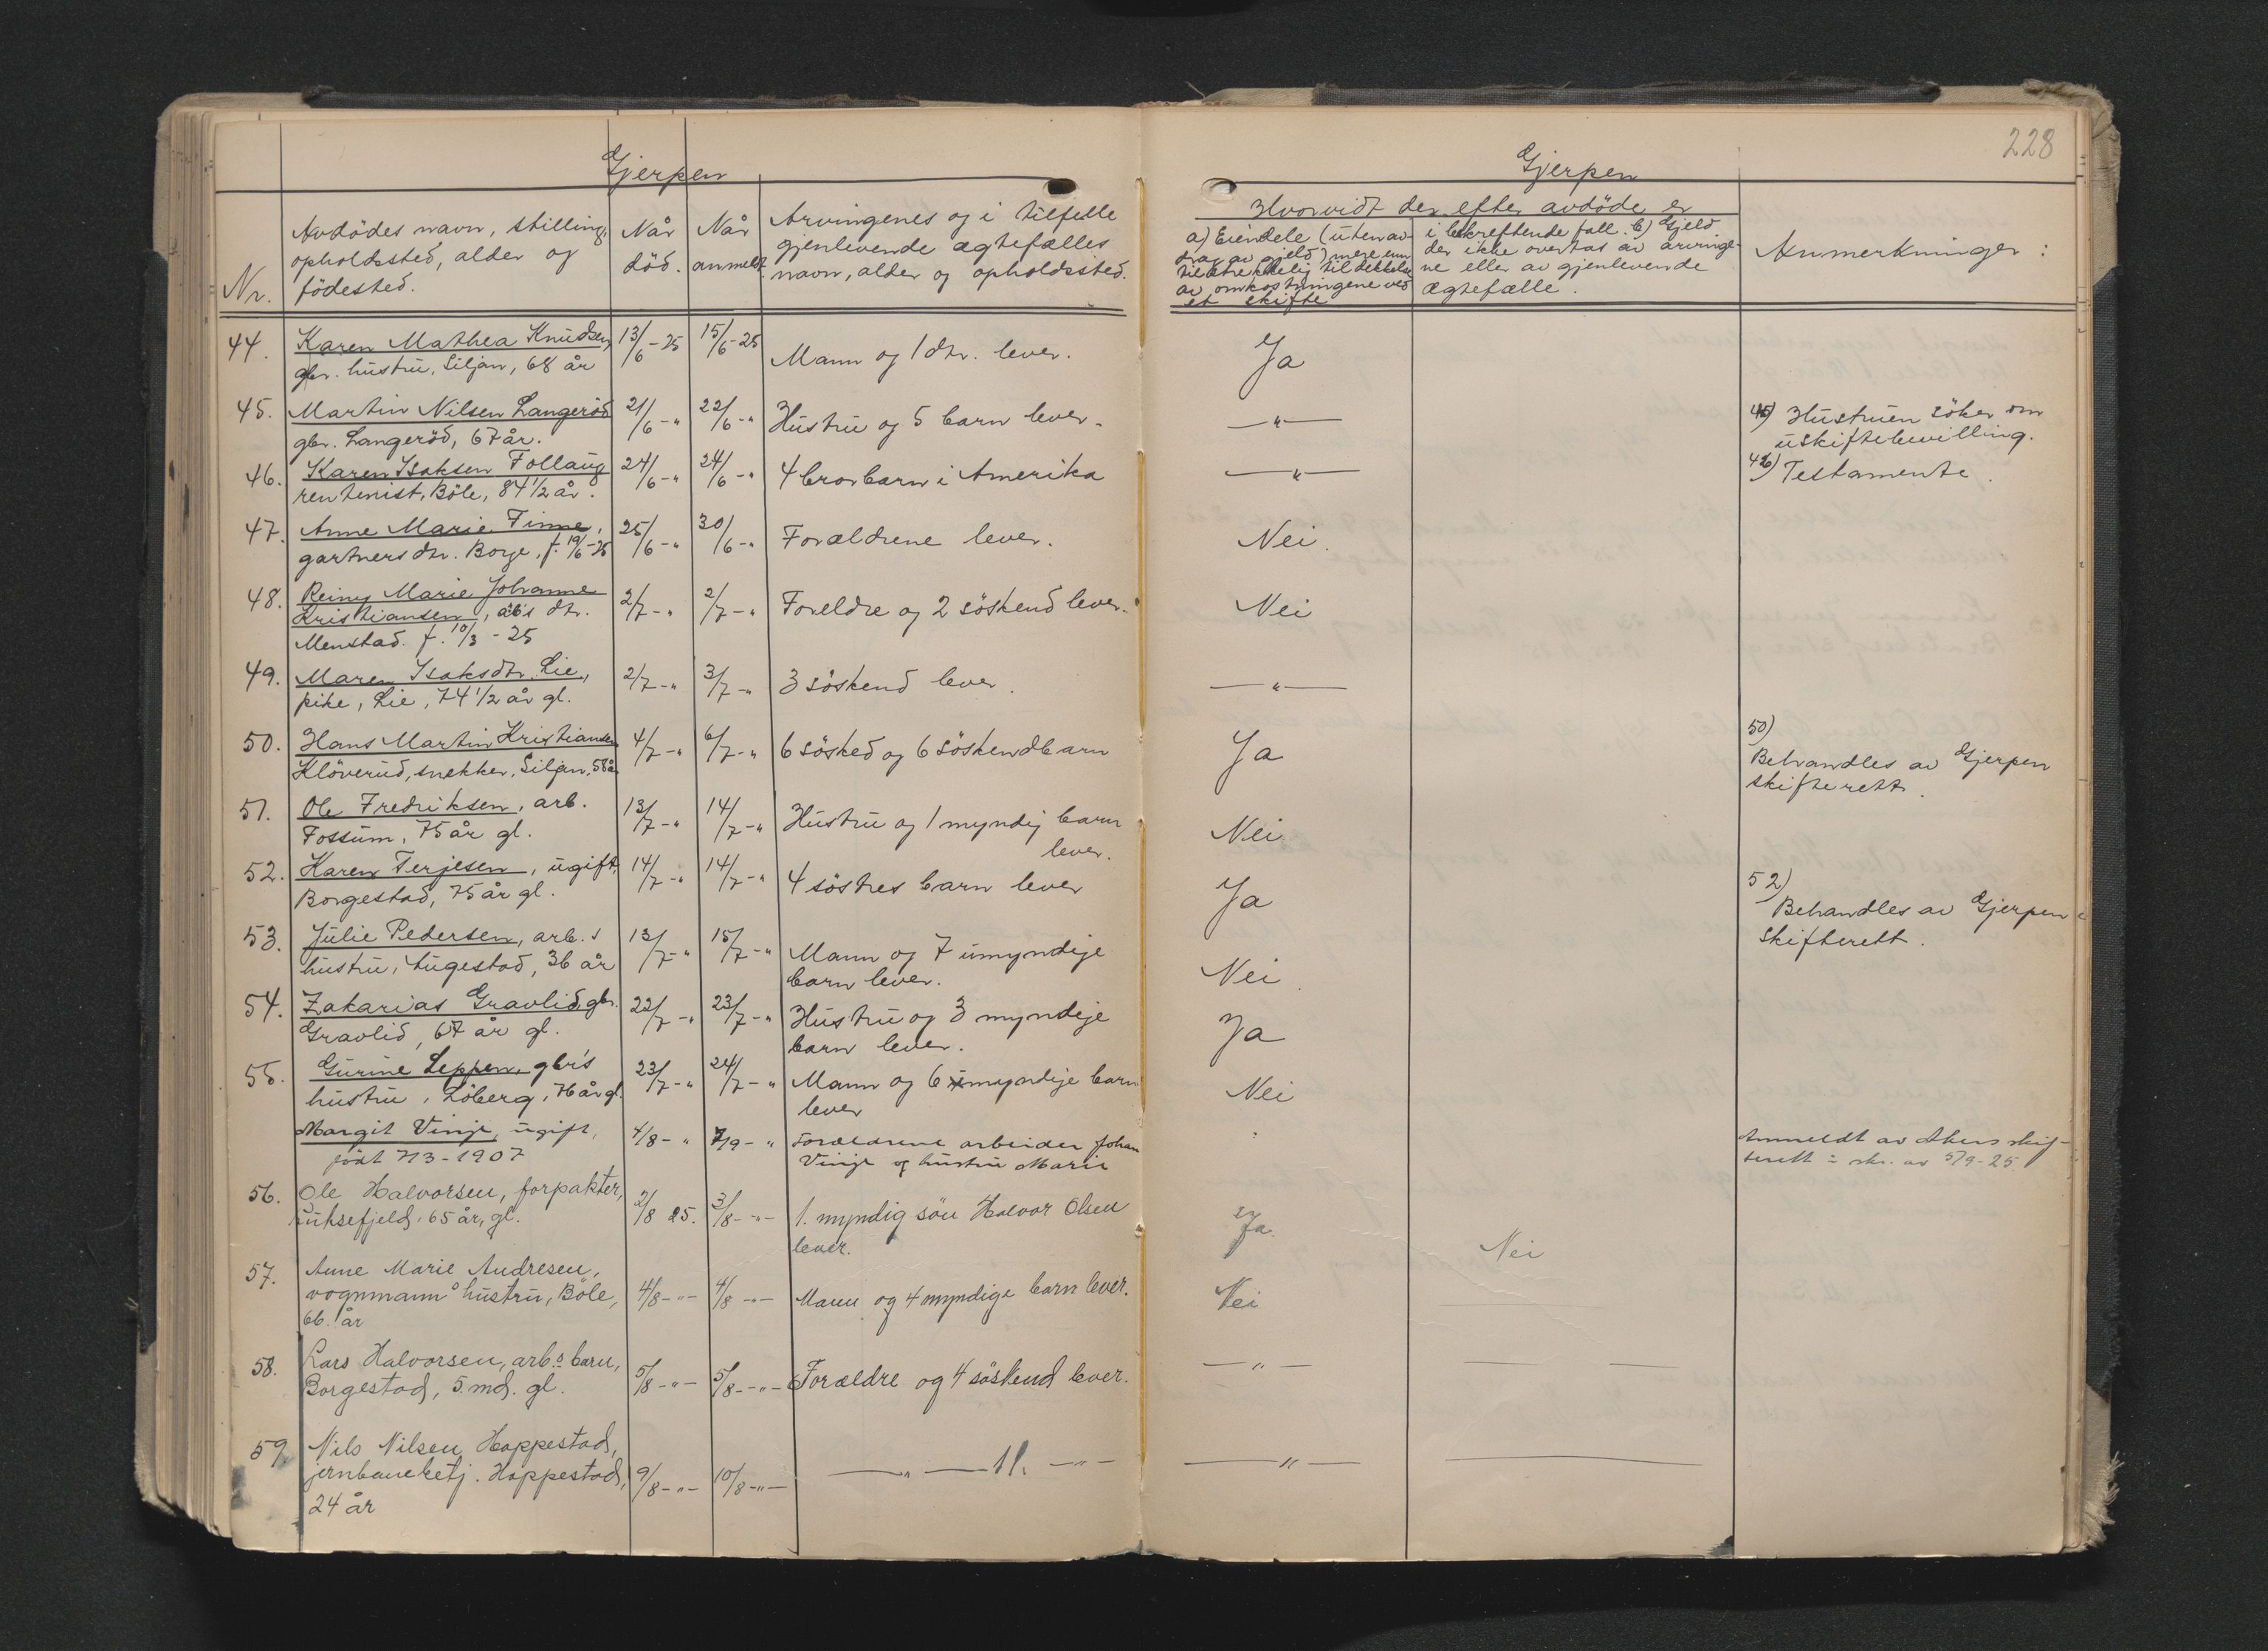 Gjerpen
Nr.
Avdödes navn, stilling,
opholdssted, alder og
födested.
Når
död.
Når
anmeldt.
Arvingenes og i tilfelle
gjenlevende ægtefælles
navn, alder og opholdssted.
44. Karen Mathea Knudsen 13/6-25 15/6-25
gbr. hustru, Siljan, 68 år Mann og 1 dtr. lever.
45. Martin Nilsen Langeröd 21/6-" 22/6-" Hustru og 5 barn lever.
gbr. Langeröd, 67 år.
46. Karen Isaksen Follaug 24/6-" 24/6-" 4 brorbarn i Amerika
rentenist, Böle, 84 1/2 år.
47. Anne Marie Finne, 25/6-" 30/6-" Forældrene lever.
gartners dtr. Borge, f. 19/6-25
48. Reiny Marie Johanne 2/7-" 2/7-" Foreldre og 2 söskend lever.
Kristiansen, ab's dtr.
Menstad. f. 10/3-25
49. Maren Isaksdtr. Lie, 2/7-" 3/7-" 3 söskend lever.
pike, Lie, 74 1/2 år gl.
50. Hans Martin Kristiansen 4/7-" 6/7-" 6 sösked og 6 söskendbarn
Klöverud, snekker, Siljan, 58 år
51. Ole Fredriksen, arb. 13/7-" 14/7-" Hustru og 1 myndig barn
Fossum, 75 år gl. lever.
52. Karen Terjesen, ugift, 14/7-" 14/7-" 4 söstres barn lever
Borgestad, 75 år gl.
53. Julie Pedersen, arb.s 13/7-" 15/7-" Mann og 7 umyndige
hustru, Augestad, 36 år barn lever.
54. Zakarias Gravlid, gbr. 22/7-" 23/7-" Hustru og 3 myndige
Gravlid, 67 år gl. barn lever.
55. Gurine Leppen, gbr's 23/7-" 24/7-" Mann og 6 myndige barn
hustru, Löberg, 76 år gl. lever
Margit Vinje, ugift, 4/8-" 7/9-" Forældrene arbeider Johan
født 7/3-1907 Vinje og hustru Marie
56. Ole Halvorsen, forpakter, 2/8 25. 3/8-"- 1. myndig sön Halvor Olsen
Luksefjeld, 65 år, gl. lever.
57. Anne Marie Andresen,
vognmanns hustru, Böle, 4/8-"- 4/8-"- Mann og 4 myndige barn lever.
66. år
58. Lars Halvorsen, arb.s barn,
Borgestad, 5. md. gl. 5/8-"- 5/8-"- Forældre og 4 söskend lever.
59. Nils Nilsen Hoppestad,
jernbanebetj. Hoppestad, 9/8-"- 10/8-"- —"— 11. —"—
24 år
228
Gjerpen
Hvorvidt der efter avdöde er
a) Eiendele (uten av-
drag av gjeld) mere enn
tilstrekkelig til dekkelse
av omkostningene ved
et skifte
i bekreftende fall. b) Gjeld
der ikke overtas av arvinge-
ne eller av gjenlevende
ægtefælle.
Anmerkninger:
Ja
—"— 45) Hustruen söker om
uskiftebevilling.
—"— 46) Testamente.
Nei.
Nei
—"—
Ja 50)
Behandles av Gjerpen
skifterett.
Nei
Ja 52)
Behandles av Gjerpen
Skifterett.
Nei.
Ja
Nei
Anmeldt av Akers skif-
terett i skr. av 5/9-25
Ja. Nei
Nei
—"—
—"—